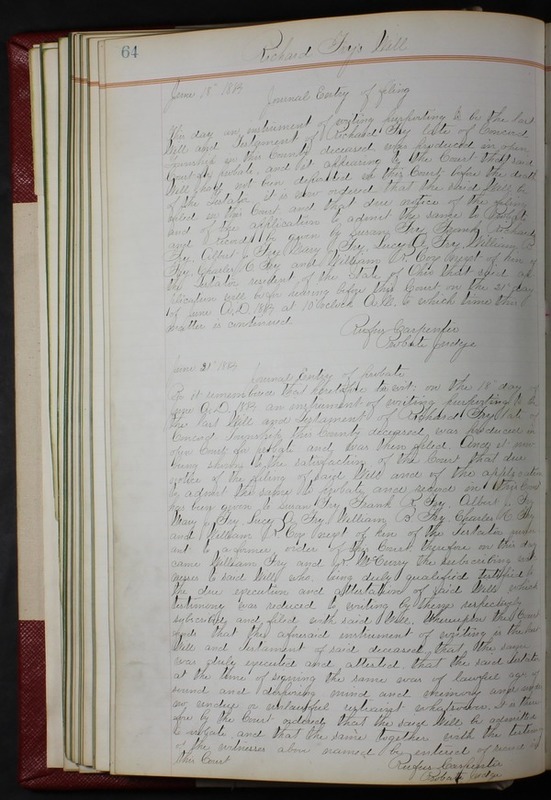 64
Richard Fry's Will
June 18" 1883
Journal Entry of filing
This day an instrument of writing purporting to be the last
Will and Testament of Richard Fry late of Concord
Township in this County deceased was produced in open
Court for probate, and it appearing to the Court that said
Will had not been deposited in this Court before the death
of the testator it is now ordered that the said Will be
filed in this Court, and that due notice of the filing
and of the application to admit the same to Probate
and Record be given to Susan Fry Frank R
Fry, Albert Fry Mary Fry, Lucy A Fry, William B
Fry, Charles C Fry and William R. Coy next of kin of
the Testator resident of the State of Ohio that said ap
plication will be for hearing before this Court on the 21" day
of June A.D. 1883 at 10 o'clock A.M. to which time this
matter is continued
Rufus Carpenter
Probate Judge
June 21" 1883
Journal Entry of probate
Be it remembered that heretofore to wit: on the 18" day of
June A.D. 1883 an instrument of writing purporting to be
the last Will and Testament of Richard Fry late of
Concord Township this County deceased, was produced in
open Court for probate and was then filed And it now
being shown to the satisfaction of the Court that due
notice of the filing of said Will and of the application
to admit the same to probate and record in this Court
has been given to Susan Fry Frank R Fry. Albert Fry
Mary Fry Lucy A Fry William B Fry Charles C Fry
and William R Coy next of kin of the Testator
to a former order of this Court therefore on this day
came William Fry and McCurry the subscribing wit
nesses to said Will who, being duly qualified testified to
the due execution and attestation of said Will which
testimony was reduced to writing by them respectively
subscribed and filed with said Will. Whereupon the Court
finds that the aforesaid instrument of writing is the last
Will and Testament of said deceased, that the same
was duly executed and attested that the said testator
at the time of signing the same was of lawful age of
sound and disposing mind and memory and under
no undue or unlawful restraint whatsoever. It is there
fore by the Court ordered that the said Will be admitted
to probate and that the same together with the testimony
of the witnesses above named be entered of record in
this Court
Rufus Carpenter
Probate Judge